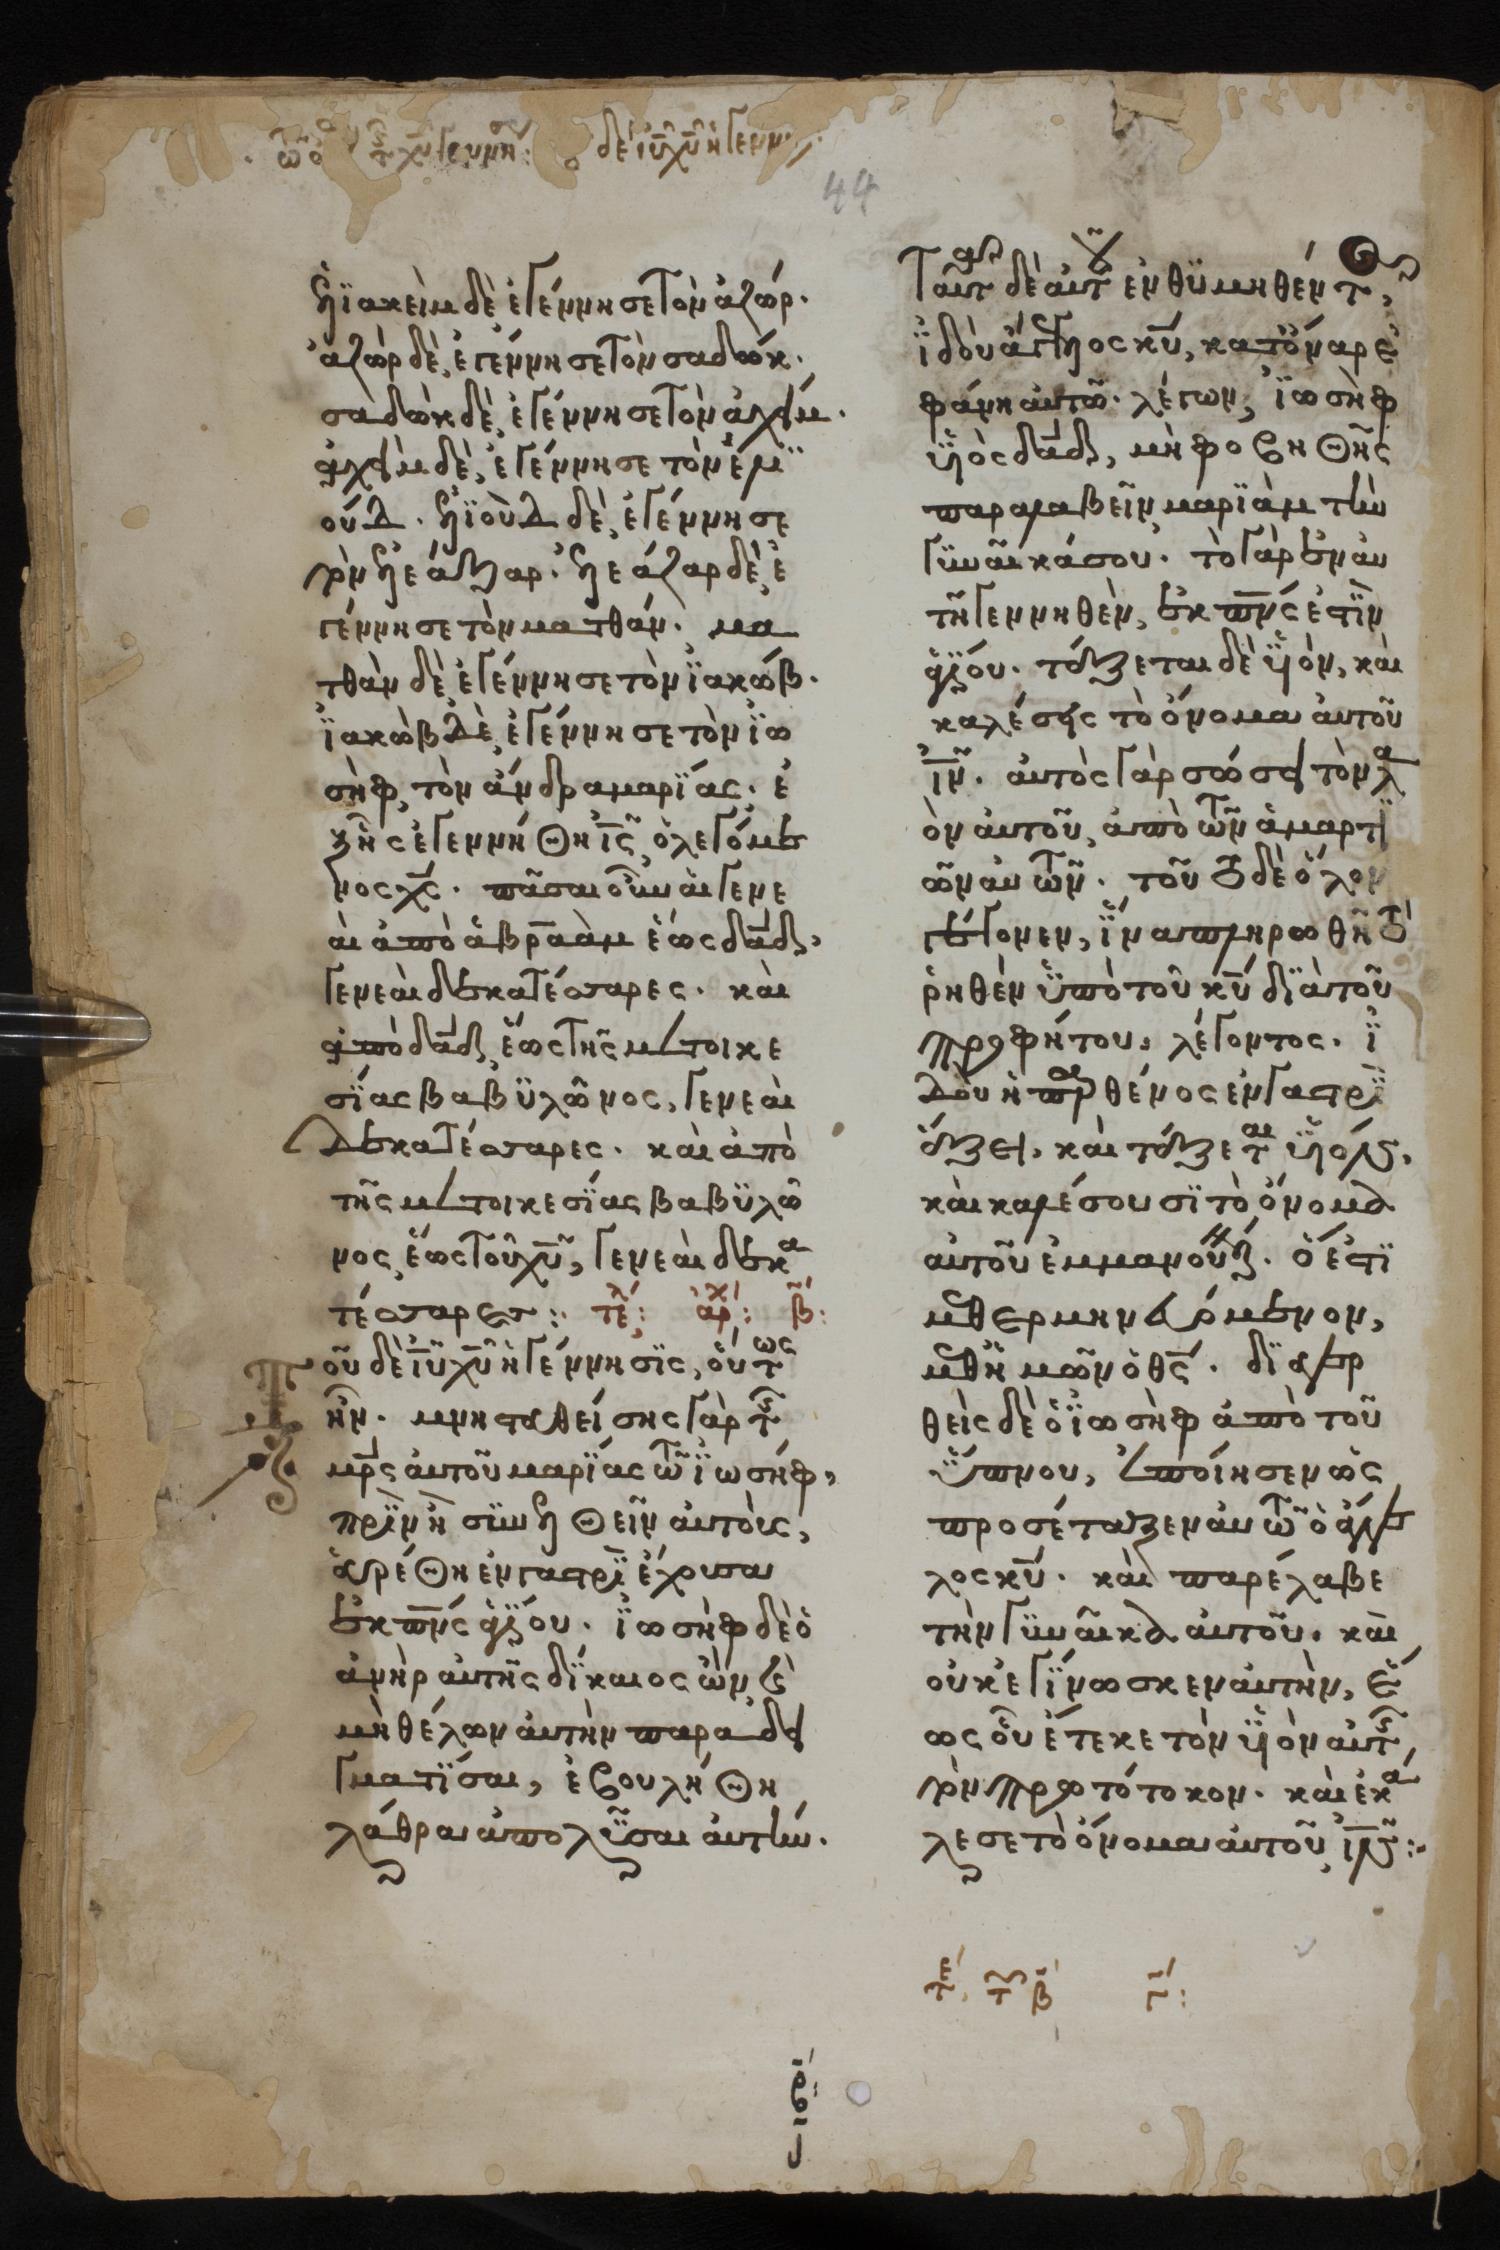 44
ἡϊακεὶμ δὲ ἐγέννησε τὸν ἀζώρ.
ἀζὼρ δὲ, ἐγέννησε τὸν σαδώκ.
σαδὼκ δὲ, ἐγέννησε τὸν ἀχείμ.
ἀχεὶμ δὲ, ἐγέννησε τὸν ἐλϊ
ούδ. ἡϊοὺδ δὲ, ἐγέννησε
τὸν ἡεάζαρ. ἡεάζαρ δὲ, ἐ
γέννησε τὸν ματθάν. μα
τθὰν δὲ, ἐγέννησε τὸν ϊακώβ.
ϊακὼβ δὲ, ἐγέννησε τὸν ϊω
σὴφ, τὸν ἄνδρα μαρϊας. ἐ
ξ ἧς ἐγεννήθη ἰς̅, ὁ λεγόμε
νος χς̅. πᾶσαι οὖν αἱ γενε
αὶ ἀπὸ ἀβραὰμ ἕως δαδ̅,
γενεαὶ δεκατέσσαρες. καὶ
ἀπὸ δαδ̅ ἕως τῆς μετοικε
σίας βαβϋλῶνος, γενεαὶ
δεκατέσσαρες. καὶ ἀπὸ
τῆς μετοικεσίας βαβϋλῶ
νος, ἕως τοῦ χυ̅, γενεαὶ δεκα
τέσσαρες: τελ: ἀρχ: β:
Τοῦ δὲ ιυ̅ χυ̅ ἡ γέννησϊς, οὕτως
ἦν. μνηστευθείσης γὰρ τῆς
μρς̅ αὐτοῦ μαρϊας τῶ ϊωσήφ,
πρὶν ἢ σϋνηλθεῖν αὐτοὺς,
εὑρέθη ἐν γαστρὶ ἔχουσα
ἐκ πνς̅ ἁγίου. ϊωσὴφ δὲ ὁ
ἀνὴρ αὐτῆς δίκαιος ὢν, καὶ
μὴ θέλων αὐτὴν παραδει
γματίσαι, ἐβουλήθη
λάθρα ἀπολῦσαι αὐτήν.
Ταῦτα δὲ αὐτοῦ ἐνθϋμηθέντος,
ϊδοὺ ἄγγελος κυ̅, κατόναρ ἐ
φάνη αὐτῶ. λέγων, ϊωσὴφ
ϋἱὸς δαδ̅, μὴ φοβηθῆς
παραλαβεῖν μαρϊὰμ τὴν
γϋναῖκά σου. τὸ γὰρ ἐν αὐ
τῆ γεννηθὲν, ἐκ πνς̅ ἐστὶν
ἁγίου. τέξεται δὲ ϋἱὸν, καὶ
καλέσεις τὸ ὄνομα αὐτοῦ
ιν̅. αὐτὸς γὰρ σώσει τὸν λα
ὸν αὐτοῦ, ἀπὸ τῶν ἁμαρτϊ
ῶν αὐτῶν. τοῦτο δὲ ὅλον
γέγονεν, ἵνα πληρωθῆ τὸ
ῥηθὲν ϋπὸ τοῦ κυ̅ διὰ τοῦ
προφήτου, λέγοντος. ϊ
δοὺ ἡ παρθένος ἐν γαστρὶ
ἕξει, καὶ τέξεται ϋἱόν,
καὶ καλέσουσϊ τὸ ὄνομα
αὐτοῦ ἐμμανουήλ. ὅ ἐστϊ
μεθερμηνευόμενον,
μεθ' ἡμῶν ὁ θς̅. διεγερ
θεὶς δὲ ὁ ϊωσὴφ ἀπὸ τοῦ
ὕπνου, ἐποίησεν ὡς
προσέταξεν αὐτῶ ὁ ἄγγε
λος κυ̅. καὶ παρέλαβε
τὴν γϋναῖκα αὐτοῦ. καὶ
οὐκ ἐγίνωσκεν αὐτὴν, ἕ
ως οὗ ἔτεκε τὸν ϋἱὸν αὐτῆς,
τὸν πρωτότοκον. καὶ ἐκα
λεσε τὸ ὄνομα αὐτοῦ, ιν̅: